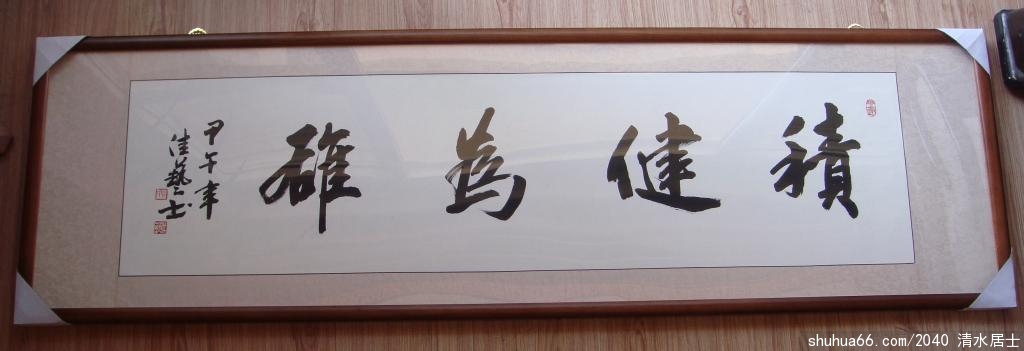 積健為雄
甲午年
佳藝士
shuhua66.com/2040 清水居士